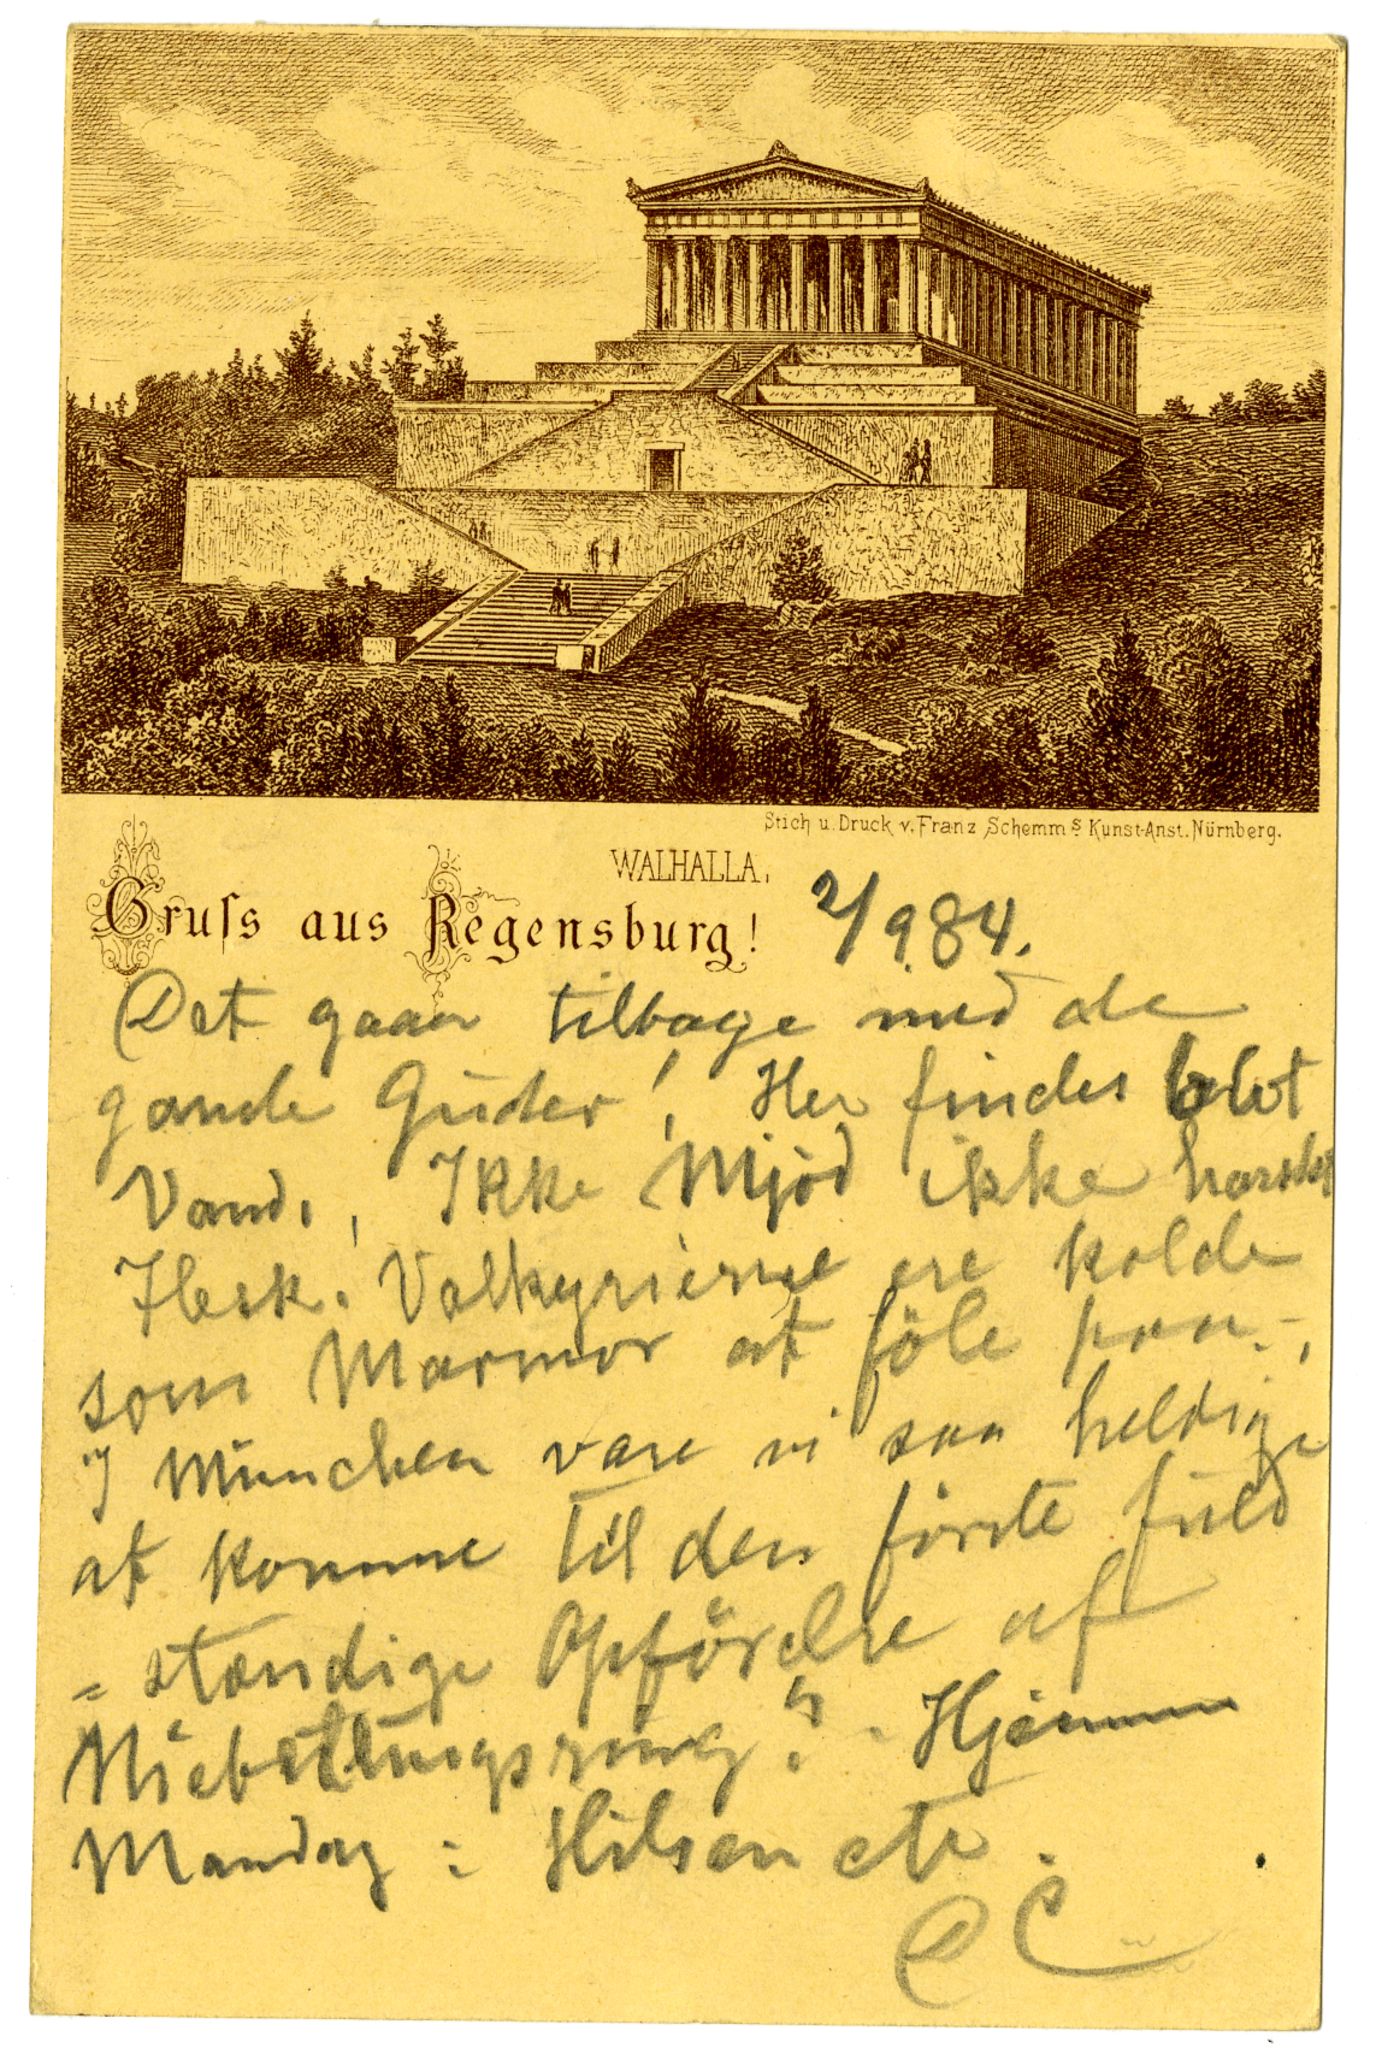 Stich u. Druck v. Franz Schemms Kunst-Anst. Nürnberg.
WALHALLA.
Gruſs aus Regensburg! 2/9.84.
Det gaar tilbage med de
gamle Guder! Her findes blot
Vand, Ikke Mjöd ikke harsk
Flesk. Valkyrierne ere kolde
som Marmor at föle paa.-,
I München vare vi saa heldige
at komme til den förste fuld
=stændige Opförelse af
Niebelungsring". Hjemme
Mandag: Hilsen etc.